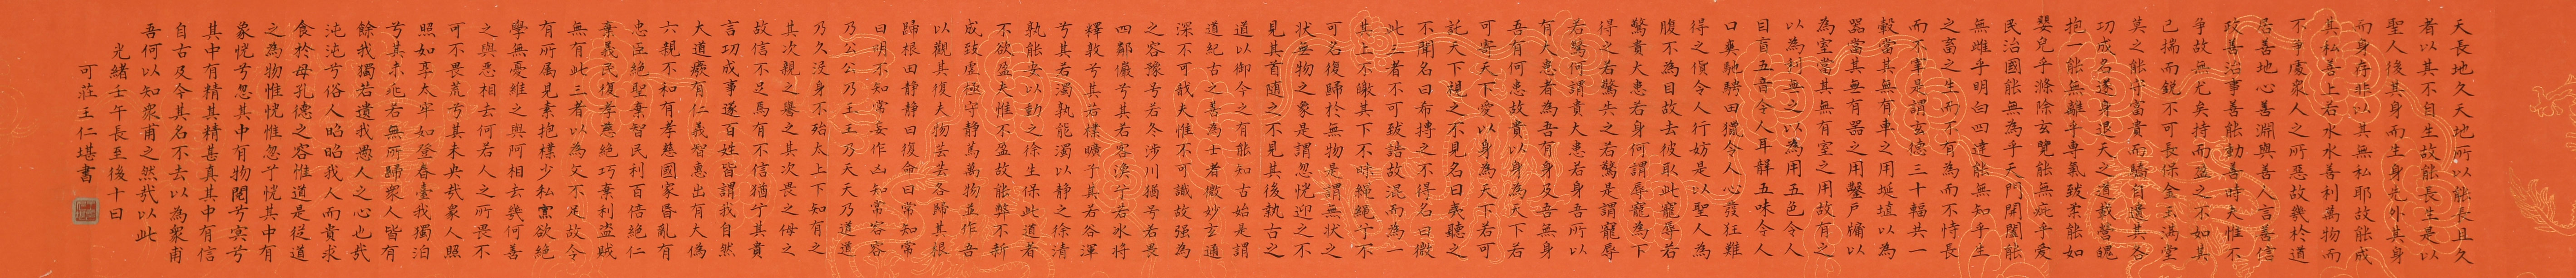 天長地久天地所以能長且久
者以其不自生故能長生是以
聖人後其身而生身先外其身
而身存非以其無私耶故能成
其私善上若水水善利萬物而
不爭處衆人之所惡故幾於道
居善地心善淵與善人言善信
政善治事善能動善時夫惟不
爭故無尤矣持而盈之不如其
已揣而銳不可長保金玉滿堂
莫之能守富貴而驕自遺其咎
功成名遂身退天之道載營魄
抱一能無離乎專氣致柔能如
嬰兒乎滌除玄覽能無疵乎愛
民治國能無為乎天門開闔能
無雌乎明白四達能無知乎生
之畜之生而不有為而不恃長
而不宰是謂玄德三十輻共一
轂當其無有車之用埏埴以為
器當其無有器之用鑿戶牖以
為室當其無有室之用故有之
以為利無之以為用五色令人
目盲五音令人耳聾五味令人
口爽馳騁田獵令人心發狂難
得之貨令人行妨是以聖人為
腹不為目故去彼取此寵辱若
驚貴大患若身何謂辱寵為下
得之若驚失之若驚是謂寵辱
若驚何謂貴大患若身吾所以
有大患者為吾有身及吾無身
吾有何患故貴以身為天下若
可寄天下愛以身為天下若可
託天下視之不見名曰夷聽之
不聞名曰希搏之不得名曰微
此三者不可致詰故混而為一
其上不皦其下不昧繩繩兮不
可名復歸於無物是謂無狀之
狀無物之象是謂忽恍迎之不
見其首隨之不見其後執古之
道以御今之有能知古始是謂
道紀古之善為士者微妙玄通
深不可識夫惟不可識故强為
之容豫兮若冬涉川猶兮若畏
四鄰儼兮其若容渙兮若冰將
釋敦兮其若樸曠兮其若谷渾
兮其若濁孰能濁以靜之徐清
孰能安以動之徐生保此道者
不欲盈夫惟不盈故能弊不新
成致虛極守靜萬萬物並作吾
以觀其復夫物芸芸各歸其根
歸根曰靜靜曰復命曰常知常
曰明不知常妄作凶知常容容
乃公公乃王王乃天天乃道道
乃久沒身不殆太上下知有之
其次親之譽之其次畏之侮之
故信不足焉有不信猶兮其貴
言功成事遂百姓皆謂我自然
大道廢有仁義智惠出有大偽
六親不和有孝慈國家昬亂有
忠臣絕聖棄智民利百倍絕仁
棄義民復孝慈絕巧棄利盜賊
無有此三者以為文不足故令
有所属見素抱樸少私寡欲絕
學無憂維之與阿相去幾何善
之與惡相去何若人之所畏不
可不畏荒兮其未央哉衆人熙
熙如享太牢如登春臺我獨泊
兮其未兆若無所歸衆人皆有
餘我獨若遺我愚人之心也哉
沌沌兮俗人昭昭我人而貴求
食於母孔德之容惟道是從道
之為物惟恍惟忽兮恍其中有
象恍兮忽其中有物窈兮冥兮
其中有精其精甚真其中有信
自古及今其名不去以為衆甫
吾何以知衆甫之然哉以此
光緒壬午長至後十日
可莊王仁堪書